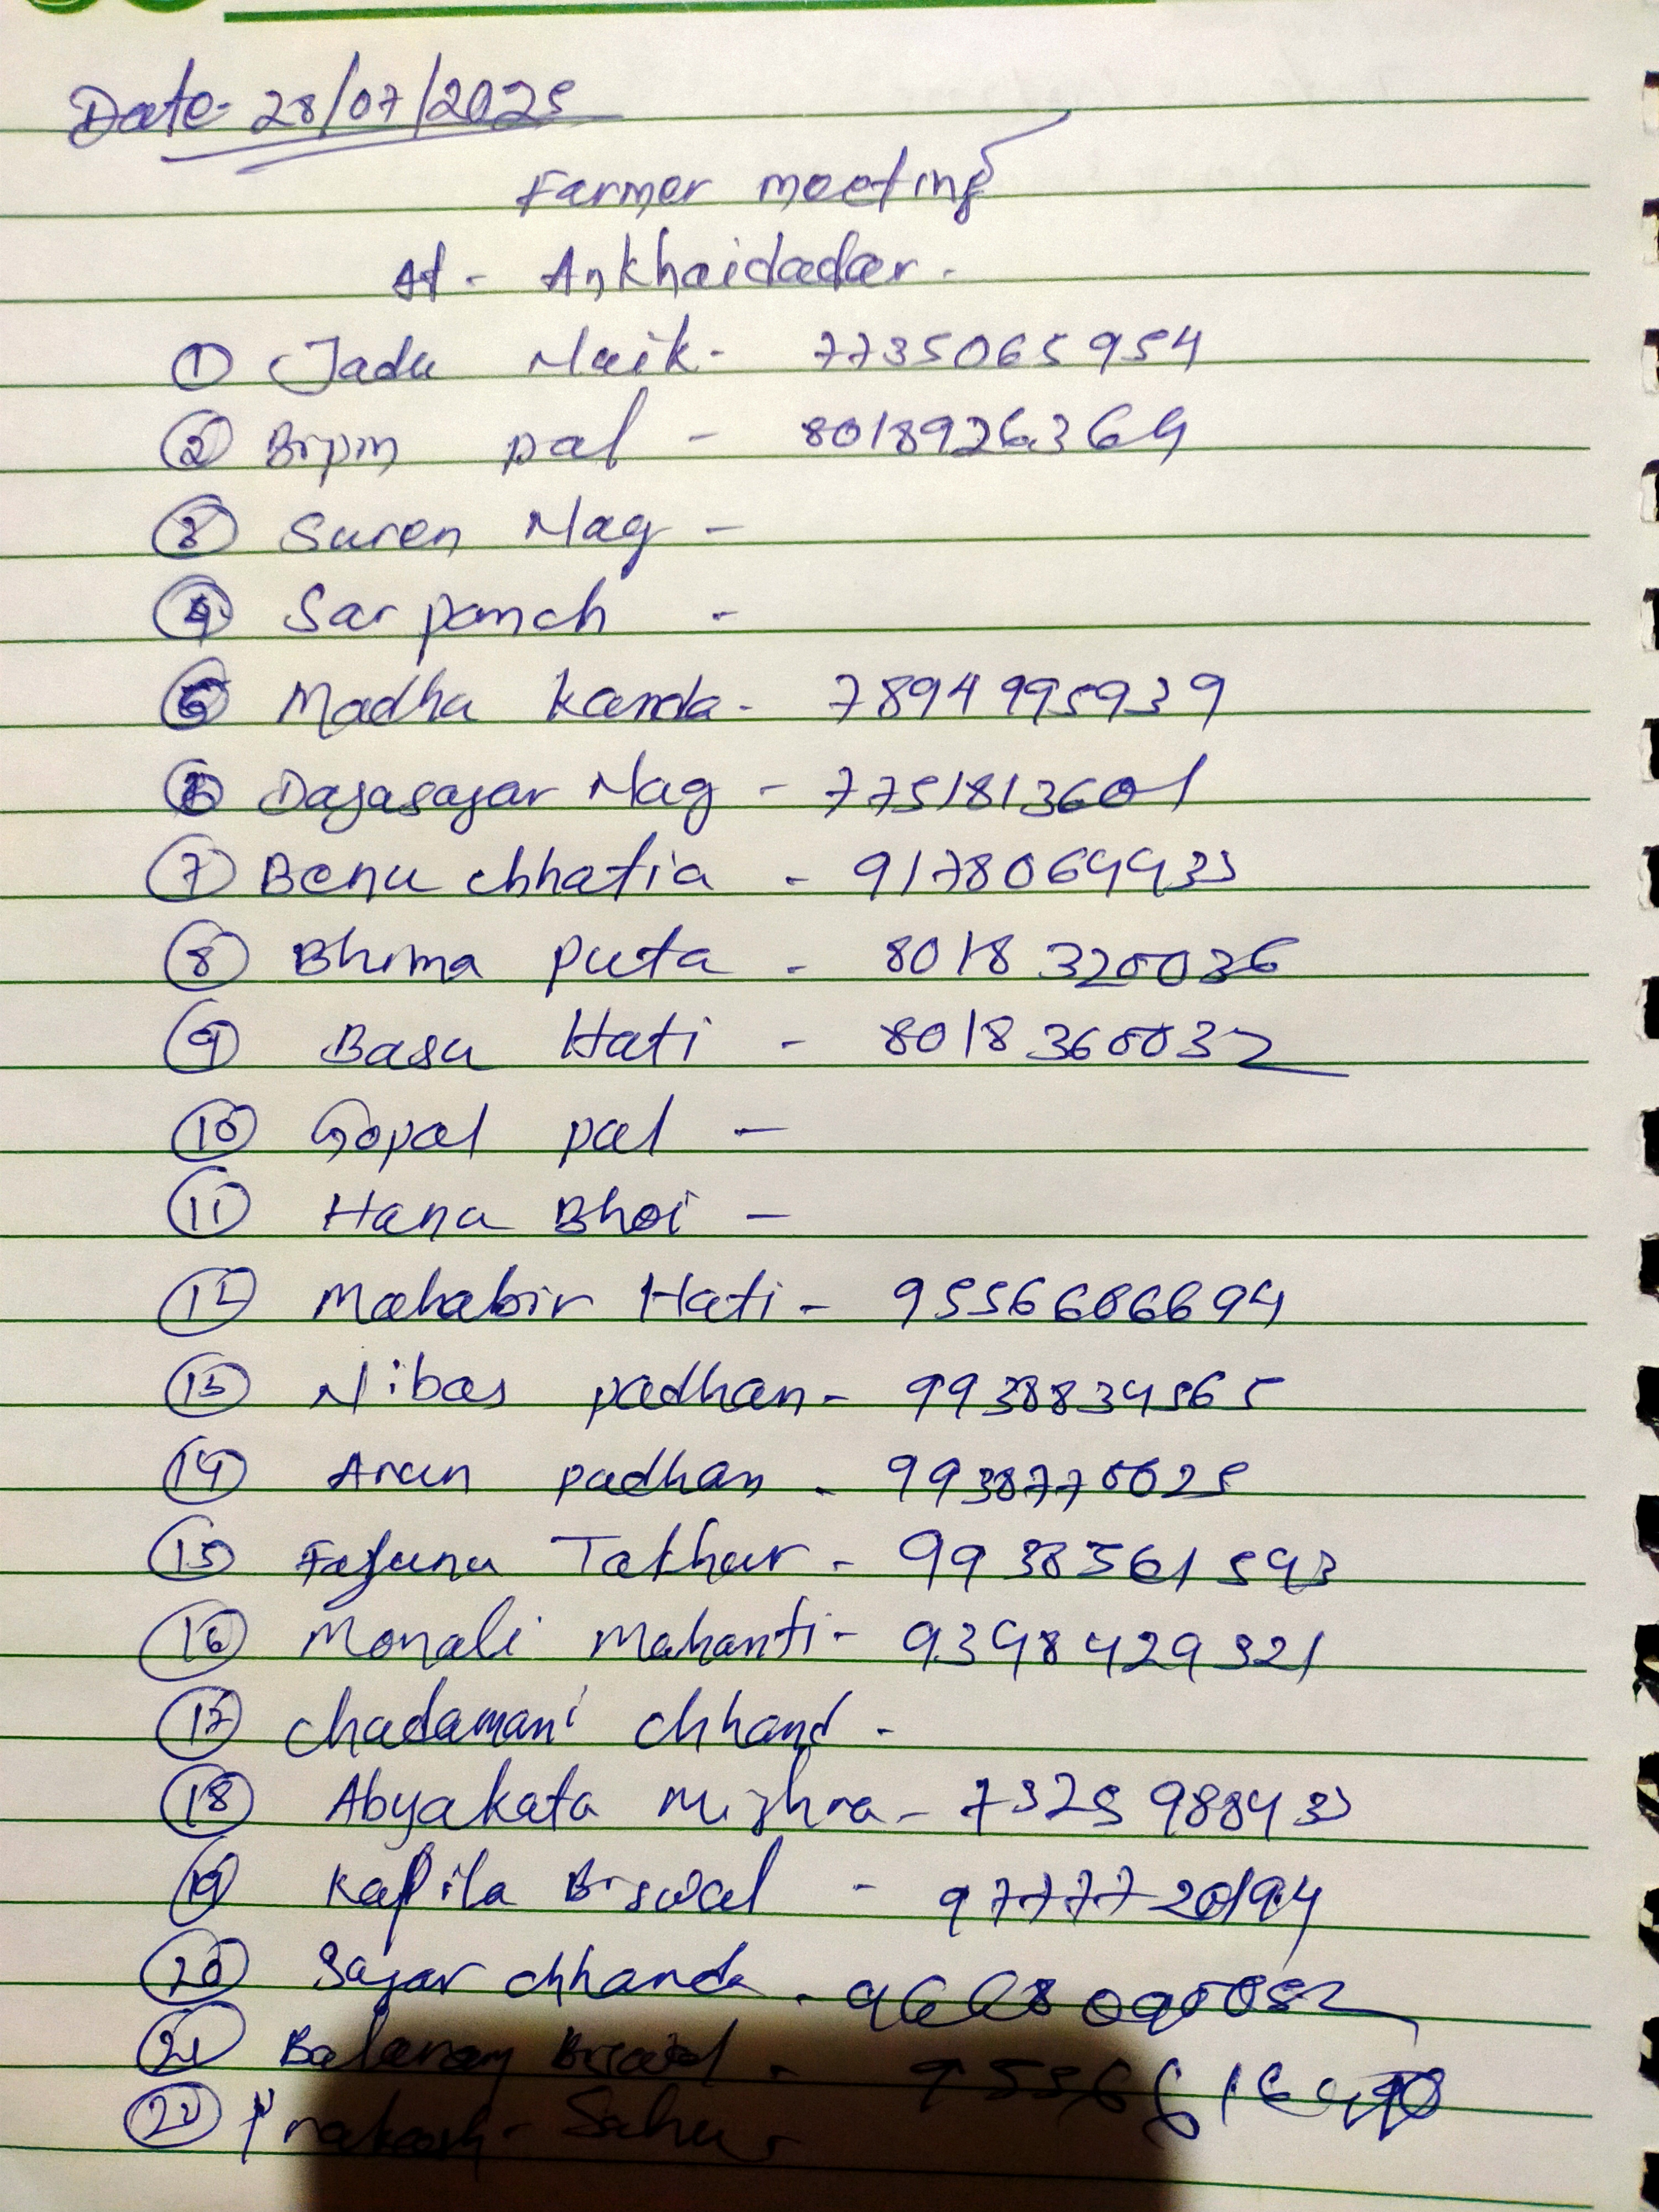 Date- 28/07/2025
Farmer meeting
At - Ankhaidadar.
① Jadu Naik - 7735065954
② Bipin pal - 8018926364
③ Suren Nag -
④ Sarpanch -
⑤ Madha Kanda - 7894995939
⑥ Dayasagar Nag - 7751813601
⑦ Benu chhatia - 9178064433
⑧ Bhima puta - 8018320036
⑨ Basu Hati - 8018360032
⑩ Gopal pal -
⑪ Hanu Bhoi -
⑫ Mahabir Hati - 9556606694
⑬ Nibas padhan - 9938834565
⑭ Arun padhan - 9938770025
⑮ Tathar - 9938561593
⑯ Monali Mahanti - 9398429321
⑰ chadamani chhand -
⑱ Abyakata Mishra - 7325988433
⑲ Kapila Biswal - 9777720194
⑳ Sagar chhanda - 9668090052
㉑ Balaram Biswal -
㉒ Prakash Sahu -